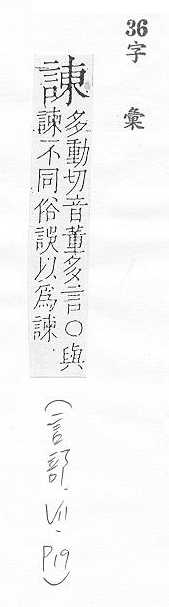 36
字彙
諌
多動切音董多言〇與
諫不同俗誤以爲諫
(言部. VII. P19)